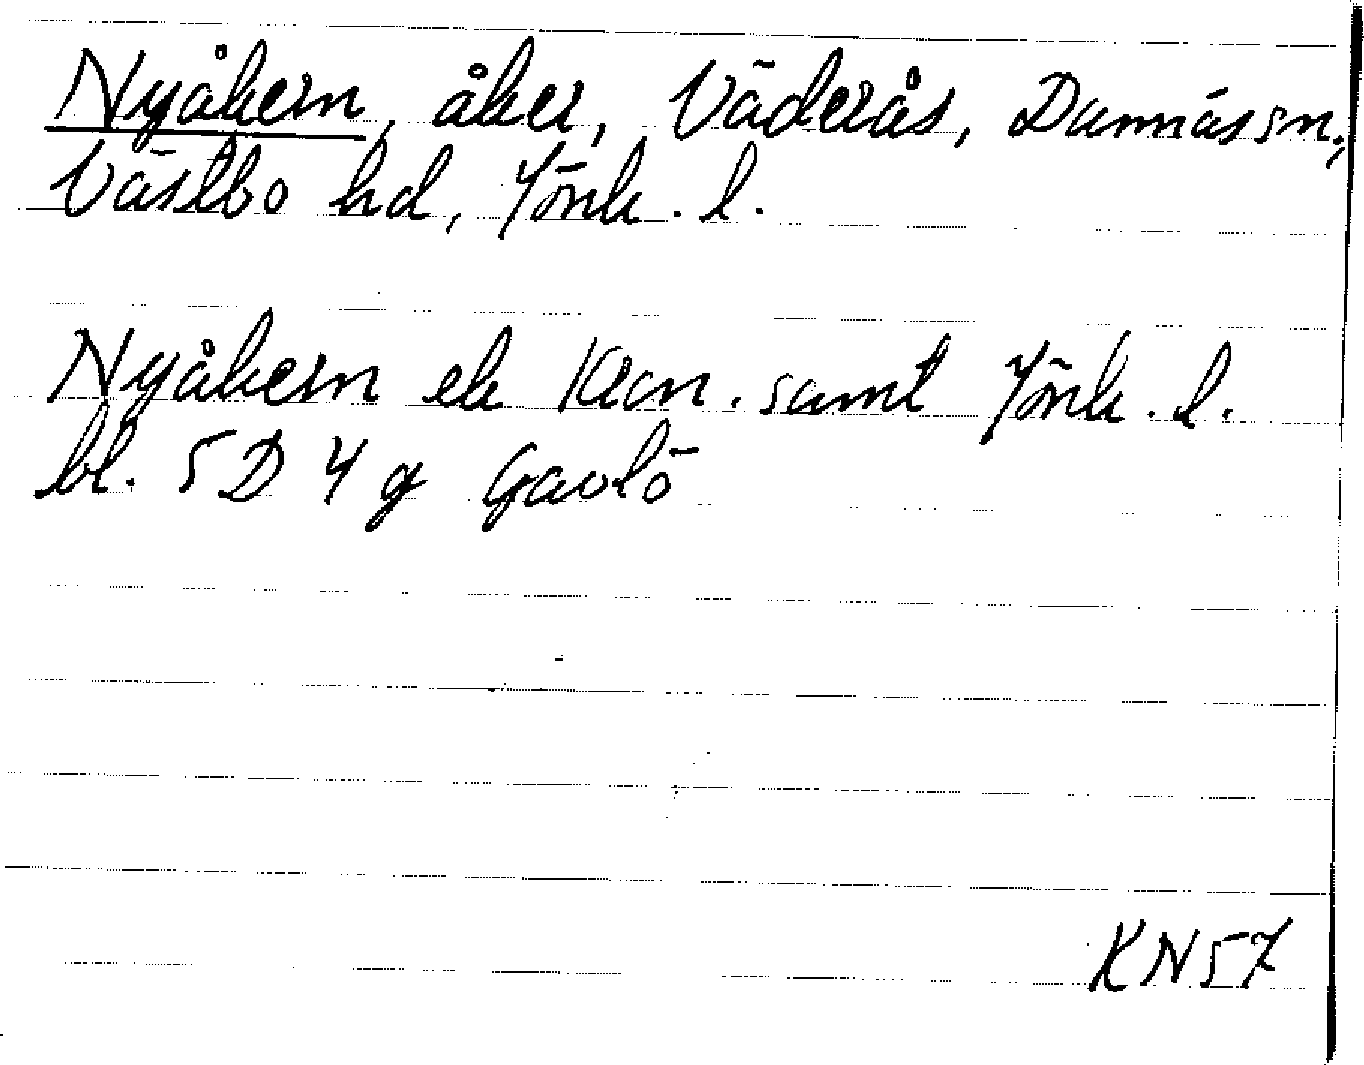 Nyåkern, åker, Väderås, Dannäs sn,
Västbo hd, Jönk. l.
Nyåkern ek Kron. samt Jönk. l.
bl. 5D 4 g Gavlö
KN57